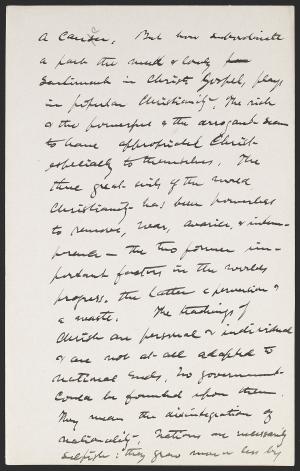 a Career. But how subordinate
a part the meek & lowly
sentiment in Christ's Gospel, plays
in popular Christianity. The rich
& the powerful & the arrogant seem
to have appropriated Christ
especially to themselves. The
three great evils of the world
Christianity has been powerless
to remove, war, avarice, & intem-
perance — the two former im-
portant factors in the worlds
progress. the latter a perversion &
a waste. The teachings of
Christ are personal or individual
& are not at all adapted to
national ends. No government
could be founded upon them.
They mean the disintegration of
nationality. Nations are necessarily
selfish: they grow more or less by